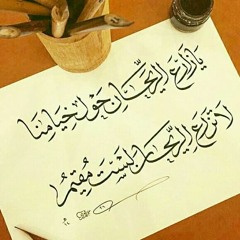 يَا زَارِعَ الرَّيْحَانِ حَوْلَ خِيَامِنَا
لَا تَزْرَعِ الرَّيْحَانَ لَسْتَ مُقِيمُ